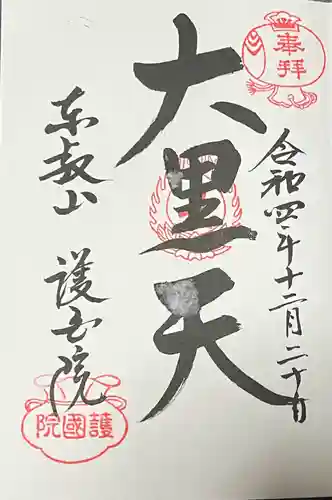 奉拝
令和四年十二月二十日
大黒天
東叡山 護国院
護國院